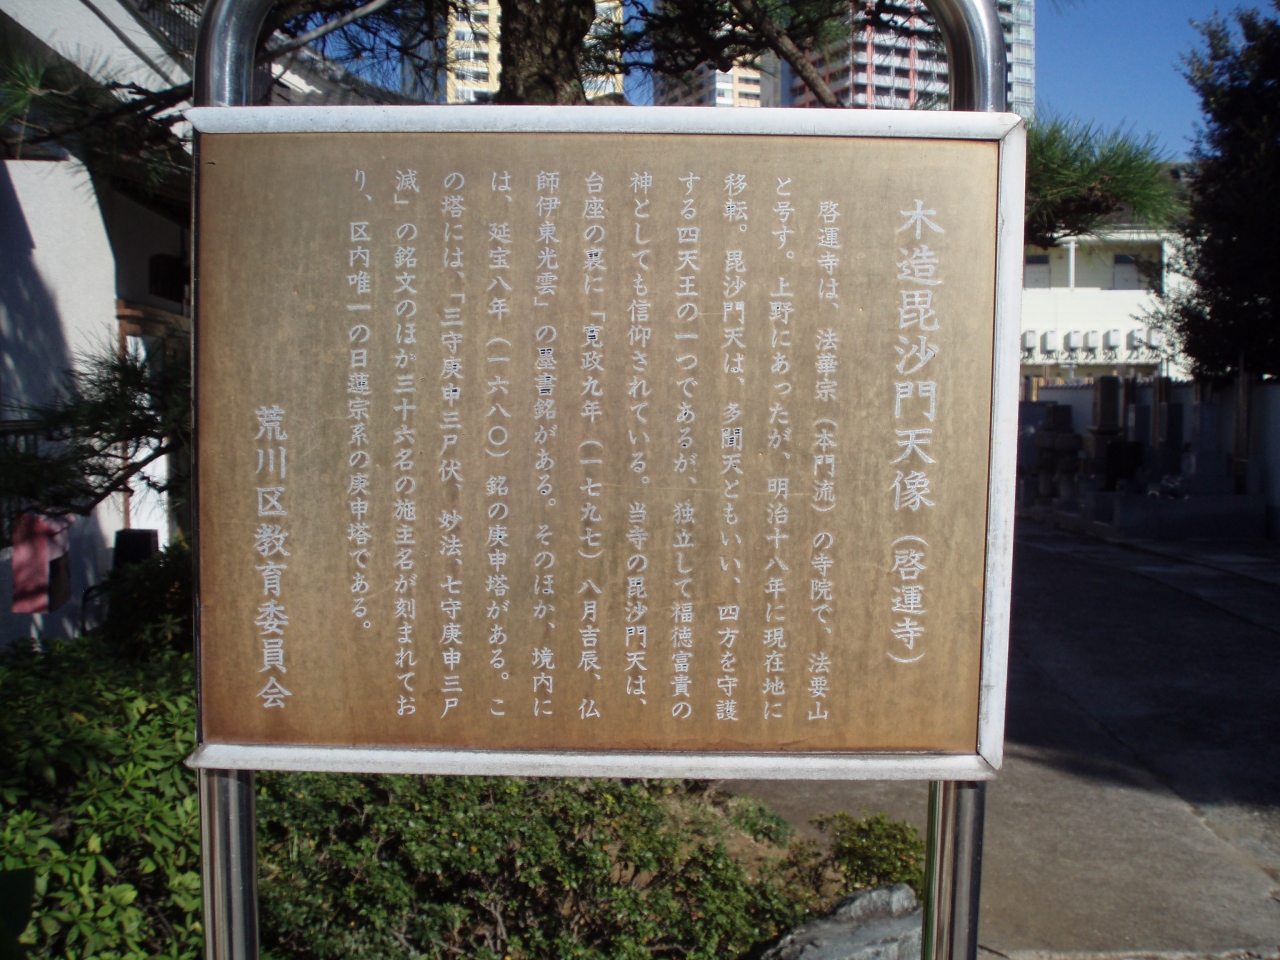 木造毘沙門天像（啓運寺）
啓運寺は、法華宗（本門流）の寺院で、法要山
と号す。上野にあったが、明治十八年に現在地に
移転。毘沙門天は、多聞天ともいい、四方を守護
する四天王の一つであるが、独立して福徳富貴の
神としても信仰されている。当寺の毘沙門天は、
台座の裏に「寛政九年（一七九七）八月吉辰、仏
師伊東光雲」の墨書銘がある。そのほか、境内に
は、延宝八年（一六八〇）銘の庚申塔がある。こ
の塔には、「三守庚申三尸伏、妙法、七守庚申三尸
滅」の銘文のほか三十六名の施主名が刻まれてお
り、区内唯一の日蓮宗系の庚申塔である。
荒川区教育委員会